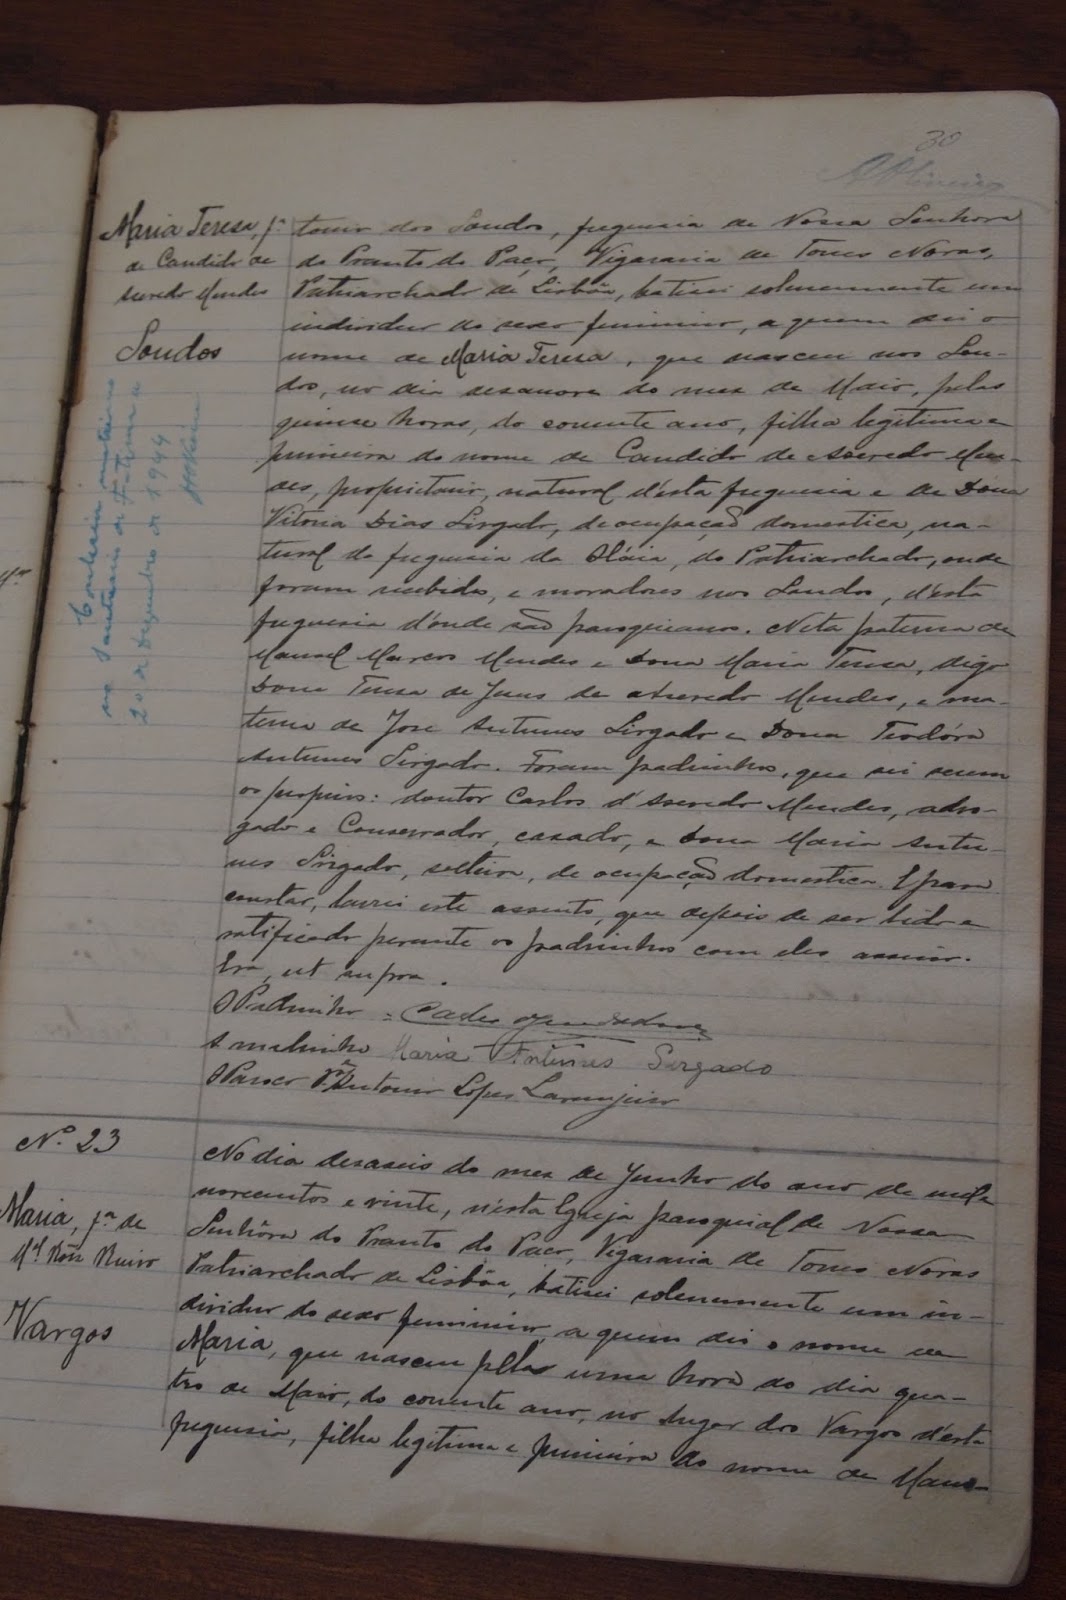 30
Maria Teresa, f.ª
de Candido de
Azeredo Mendes
Soudos
Contraiu matrimonio
no Santuario de Fatima a
20 de Dezembro de 1944
dos Soudos, freguesia de Nossa Senhora
do Pranto do Paço, Vigararia de Torres Novas,
Patriarchado de Lisbôa, batisei solenemente um
individuo do sexo feminino, a quem dei o
nome de Maria Teresa, que nasceu nos Sou-
dos, no dia desanove do mez de Maio, pelas
quinse horas, do corrente ano, filha legitima e
primeira do nome de Candido de Azeredo Men-
des, proprietario, natural d'esta freguesia e de Dona
Vitoria Dias Sirgado, de ocupação domestica, na-
tural da freguesia da Oláia, do Patriarchado, onde
foram recebidos, e moradores nos Soudos, d'esta
freguesia d'onde são paroquianos. Neta paterna de
Manoel Marcos Mendes e Dona Maria Teresa, digo
Dona Teresa de Jesus de Azeredo Mendes, e ma-
terna de José Antunes Sirgado e Dona Teodóra
Antunes Sirgado. Foram padrinhos, que sei serem
os proprios: doutor Carlos d'Azeredo Mendes, advo-
gado e Conservador, casado, e Dona Maria Antu-
nes Sirgado, solteira, de ocupação domestica. E para
constar, lavrei este assento, que depois de ser lido e
ratificado perante os padrinhos com eles assino.
Era ut supra.
O Padrinho = Carlos Azeredo Mendes
A madrinha Maria Antunes Sirgado
O Paroco P.e Antonio Lopes Laranjeiro
N.º 23
Maria, f.ª de
M.el
Vargos
No dia desaseis do mez de Junho do ano de mil e
novecentos e vinte, n'esta Egreja paroquial de Nossa
Senhôra do Pranto do Paço, Vigararia de Torres Novas
Patriarchado de Lisbôa, batisei solenemente um in-
dividuo do sexo feminino a quem dei o nome de
Maria, que nasceu pelas uma hora do dia qua-
tro de Maio, do corrente ano, no lugar dos Vargos d'esta
freguesia, filha legitima e primeira do nome de Mano-